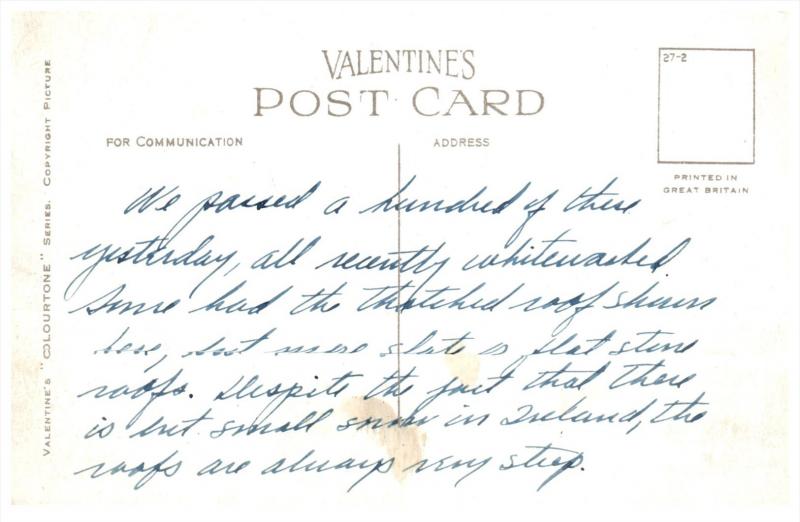 VALENTINE'S
POST CARD
FOR COMMUNICATION
ADDRESS
27-2
PRINTED IN
GREAT BRITAIN
VALENTINE'S "COLOURTONE" SERIES. COPYRIGHT PICTURE
We passed a hundred of these
yesterday, all recently whitewashed
Some had the thatched roof shown
here, but more slate or flat stone
roofs. Despite the fact that there
is but small snow in Ireland, the
roofs are always very steep.